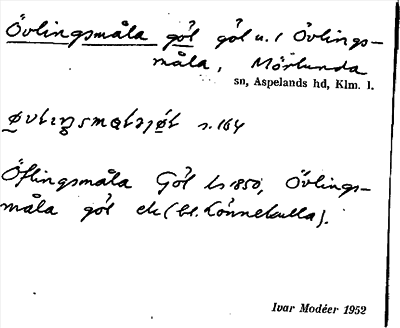 Övlingsmåla göl göl u. Övlings-
måla, Mörlunda
sn, Aspelands hd, Klm. l.
s. 164
Öflingsmåla Göl ls 1850, Övlings-
måla göl ek (bl. Lönnekulla).
Ivar Modéer 1952